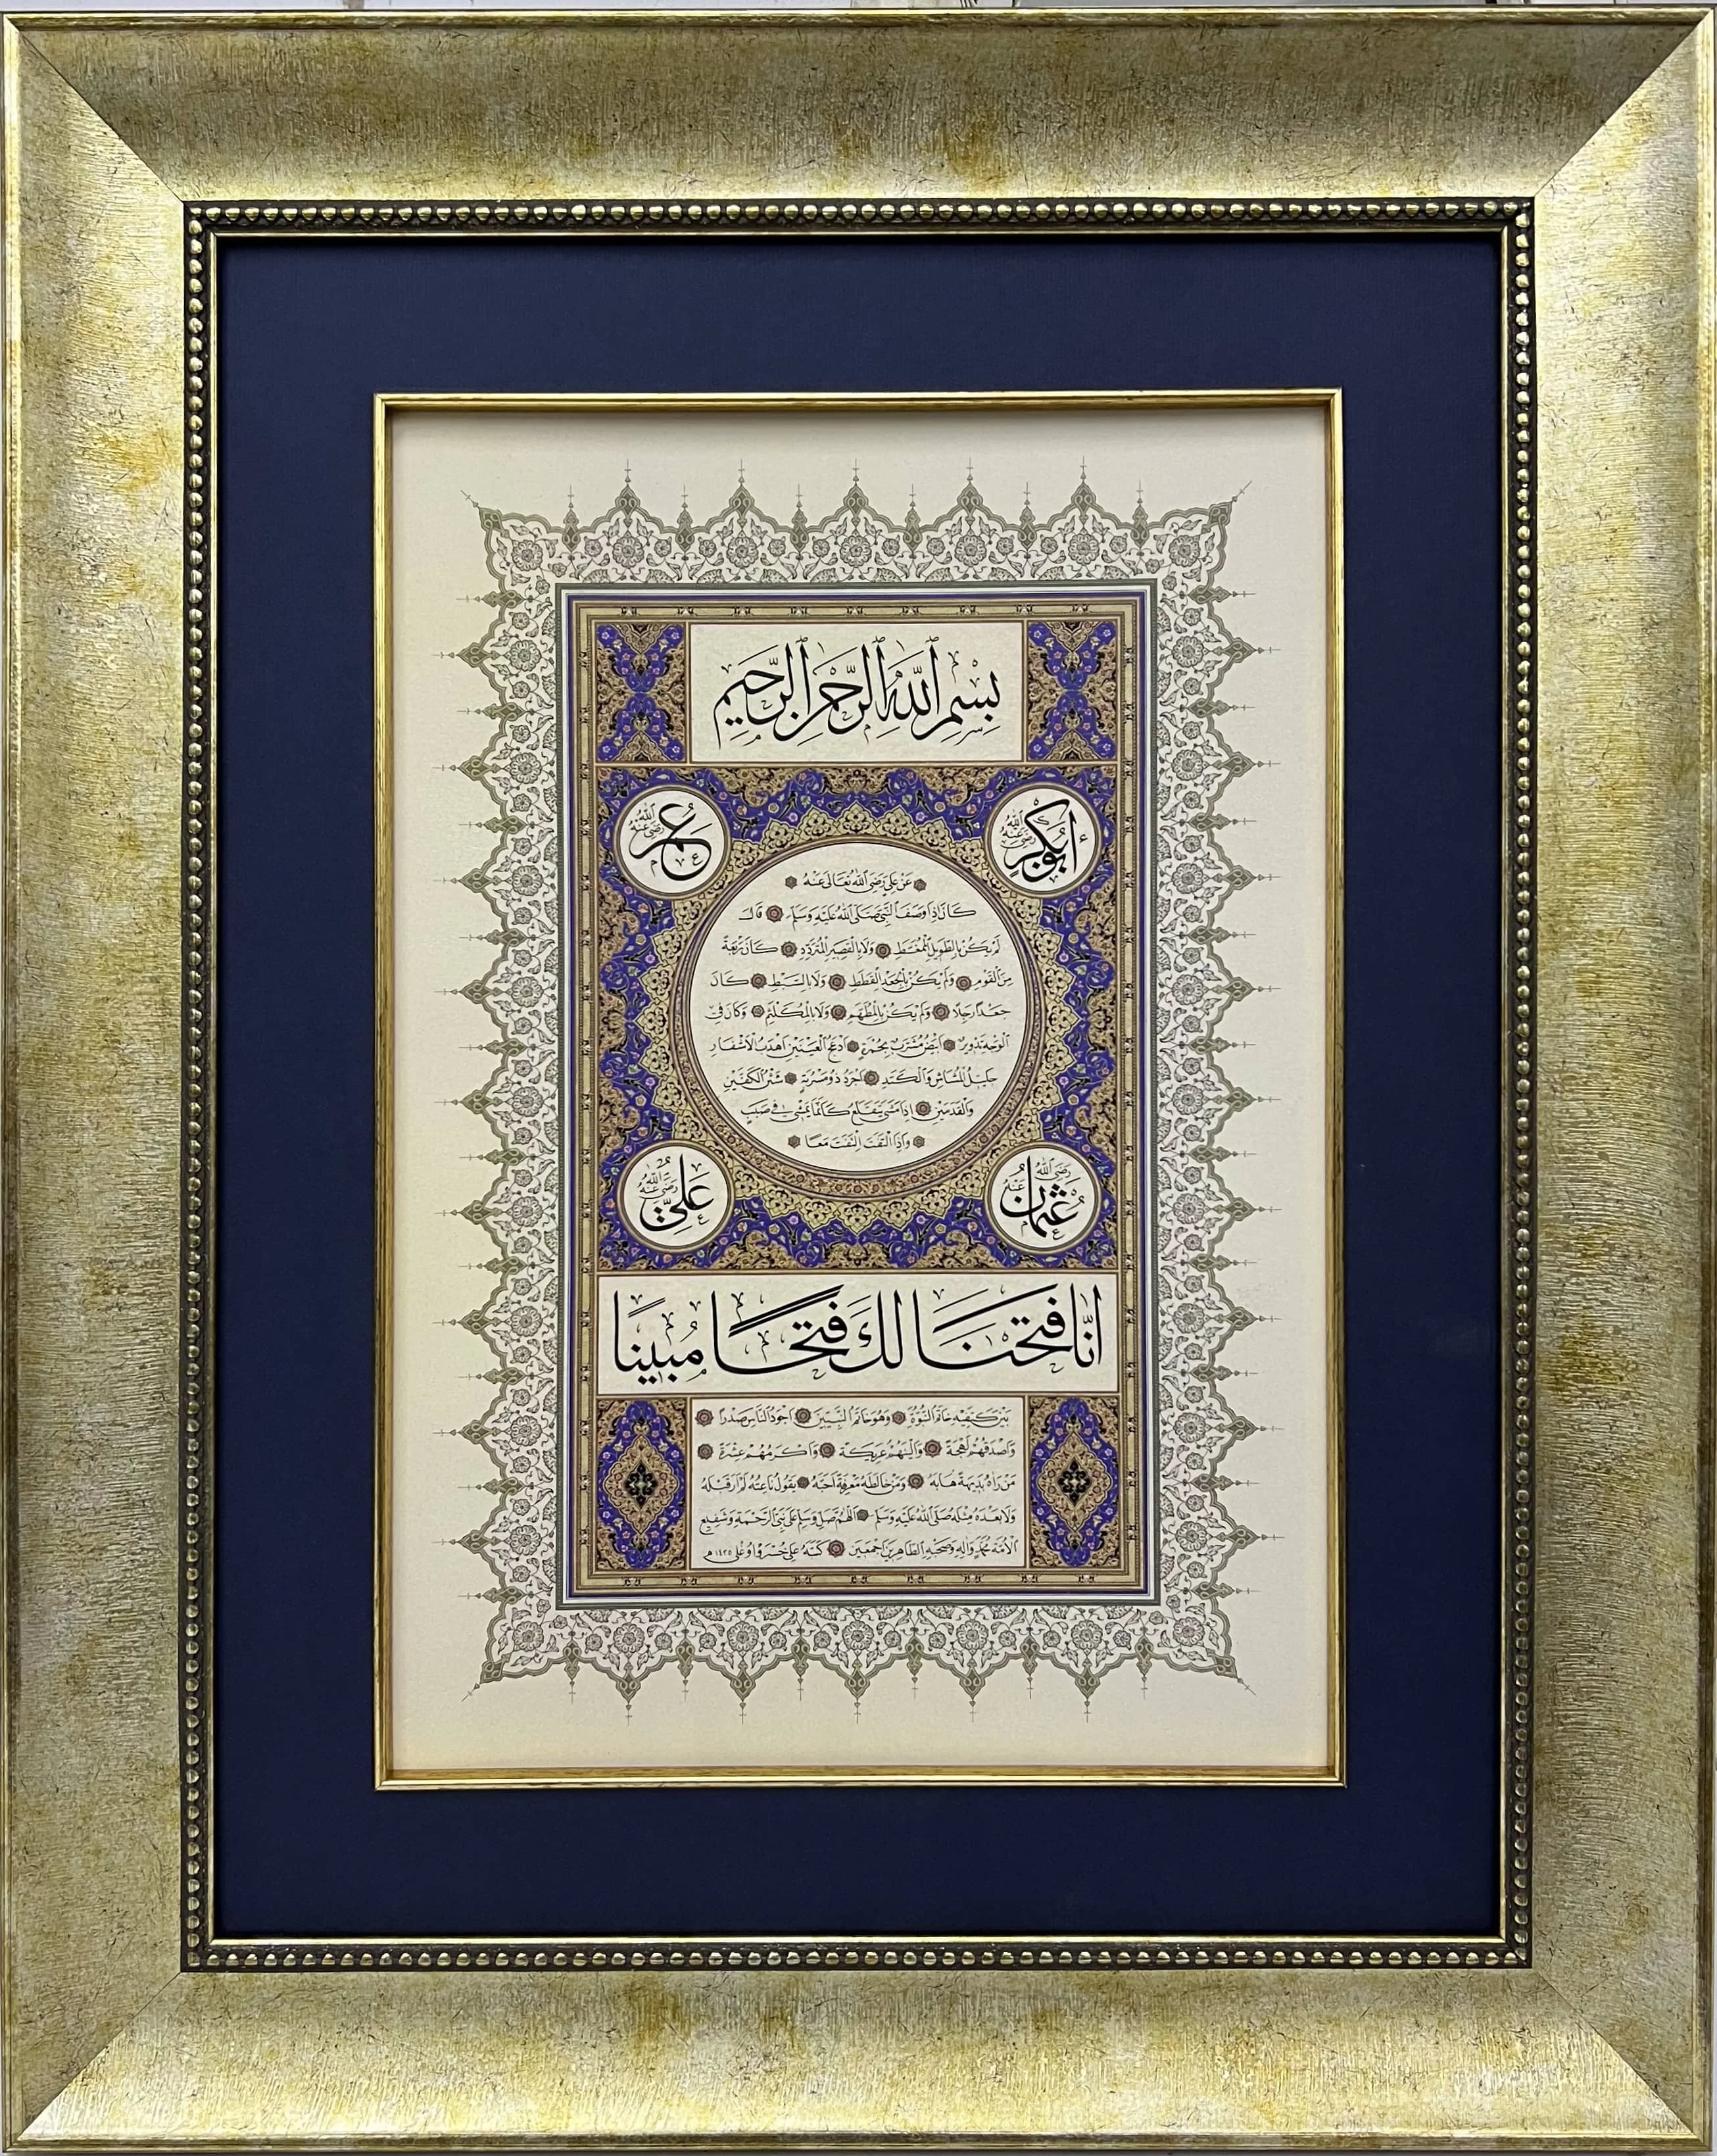 بِسْمِ ٱللّٰهِ ٱلرَّحْمٰنِ ٱلرَّحِيمِ
أبوبكر رضي الله عنه
عمر رضي الله عنه
عن علي رضي الله تعالى عنه
كان إذا وصف النبي صلى الله عليه وسلم قال
لم يكن بالطويل الممغط ولا بالقصير المتردد كان ربعة
من القوم ولم يكن بالجعد القطط ولا بالسبط كان
جعدا رجلا ولم يكن بالمطهم ولا بالمكلثم وكان في
الوجه تدوير ابيض مشرب بحمرة ادعج العينين اهدب الاشفار
جليل المشاش والكتد اجرد ذو مسربة شثن الكفين
والقدمين اذا مشى يتقلع كانما يمشي في صبب
واذا التفت التفت معا
عثمان رضي الله عنه
علي رضي الله عنه
انا فتحنا لك فتحا مبينا
بين كتفيه خاتم النبوة وهو خاتم النبيين اجود الناس صدرا
واصدقهم لهجة والينهم عريكة واكرمهم عشرة
من راه بديهة هابه ومن خالطه معرفة احبه يقول ناعته لم ار قبله
ولا بعده مثله صلى الله عليه وسلم اللهم صل وسلم على نبي الرحمة وشفيع
الامة محمد واله وصحبه الطاهرين اجمعين كتبه علي خسرو اوغلى ١٤٣٥ هـ